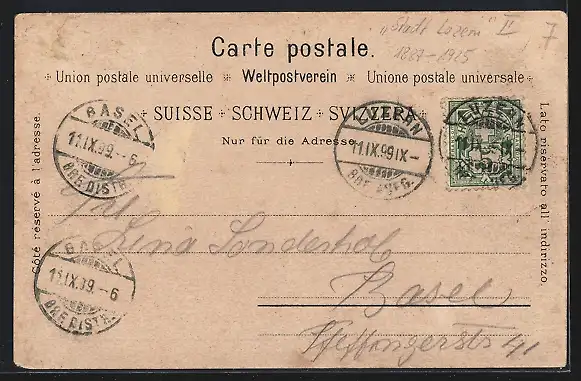 „Stadt Luzern" II
7
Carte postale.
Union postale universelle Weltpostverein Unione postale universale
SUISSE SCHWEIZ SVIZZERA
Nur für die Adresse.
Côté réservé à l'adresse.
Lato riservato all' indirizzo.
BASEL
11.IX.99.-6
BRF.DISTR.
LUZERN
11.IX.99.IX-
BRF.
LUZERN
BASEL
11.IX.99.-6
BRF.DISTR.
Lina
Basel
41